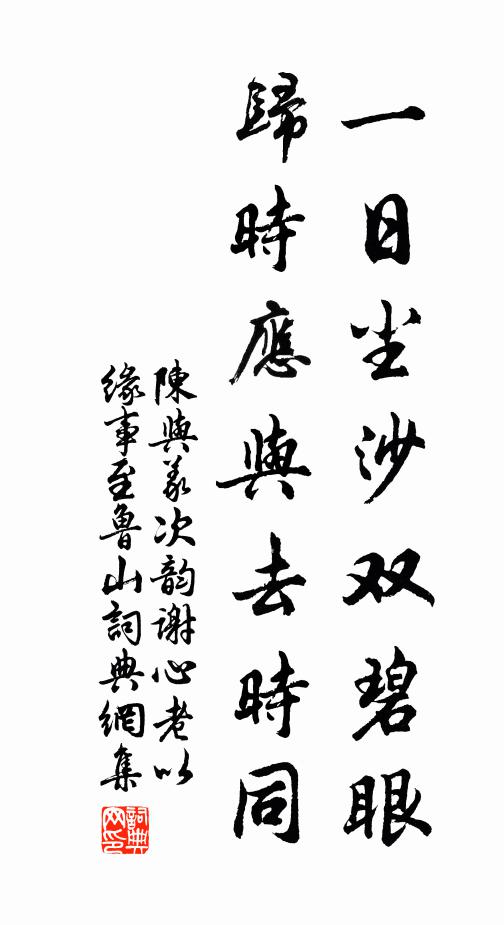 一日尘沙双碧眼
歸時應與去時同
陳與义次韵謝心老以
緣事至魯山詞典網集
詞典
网印